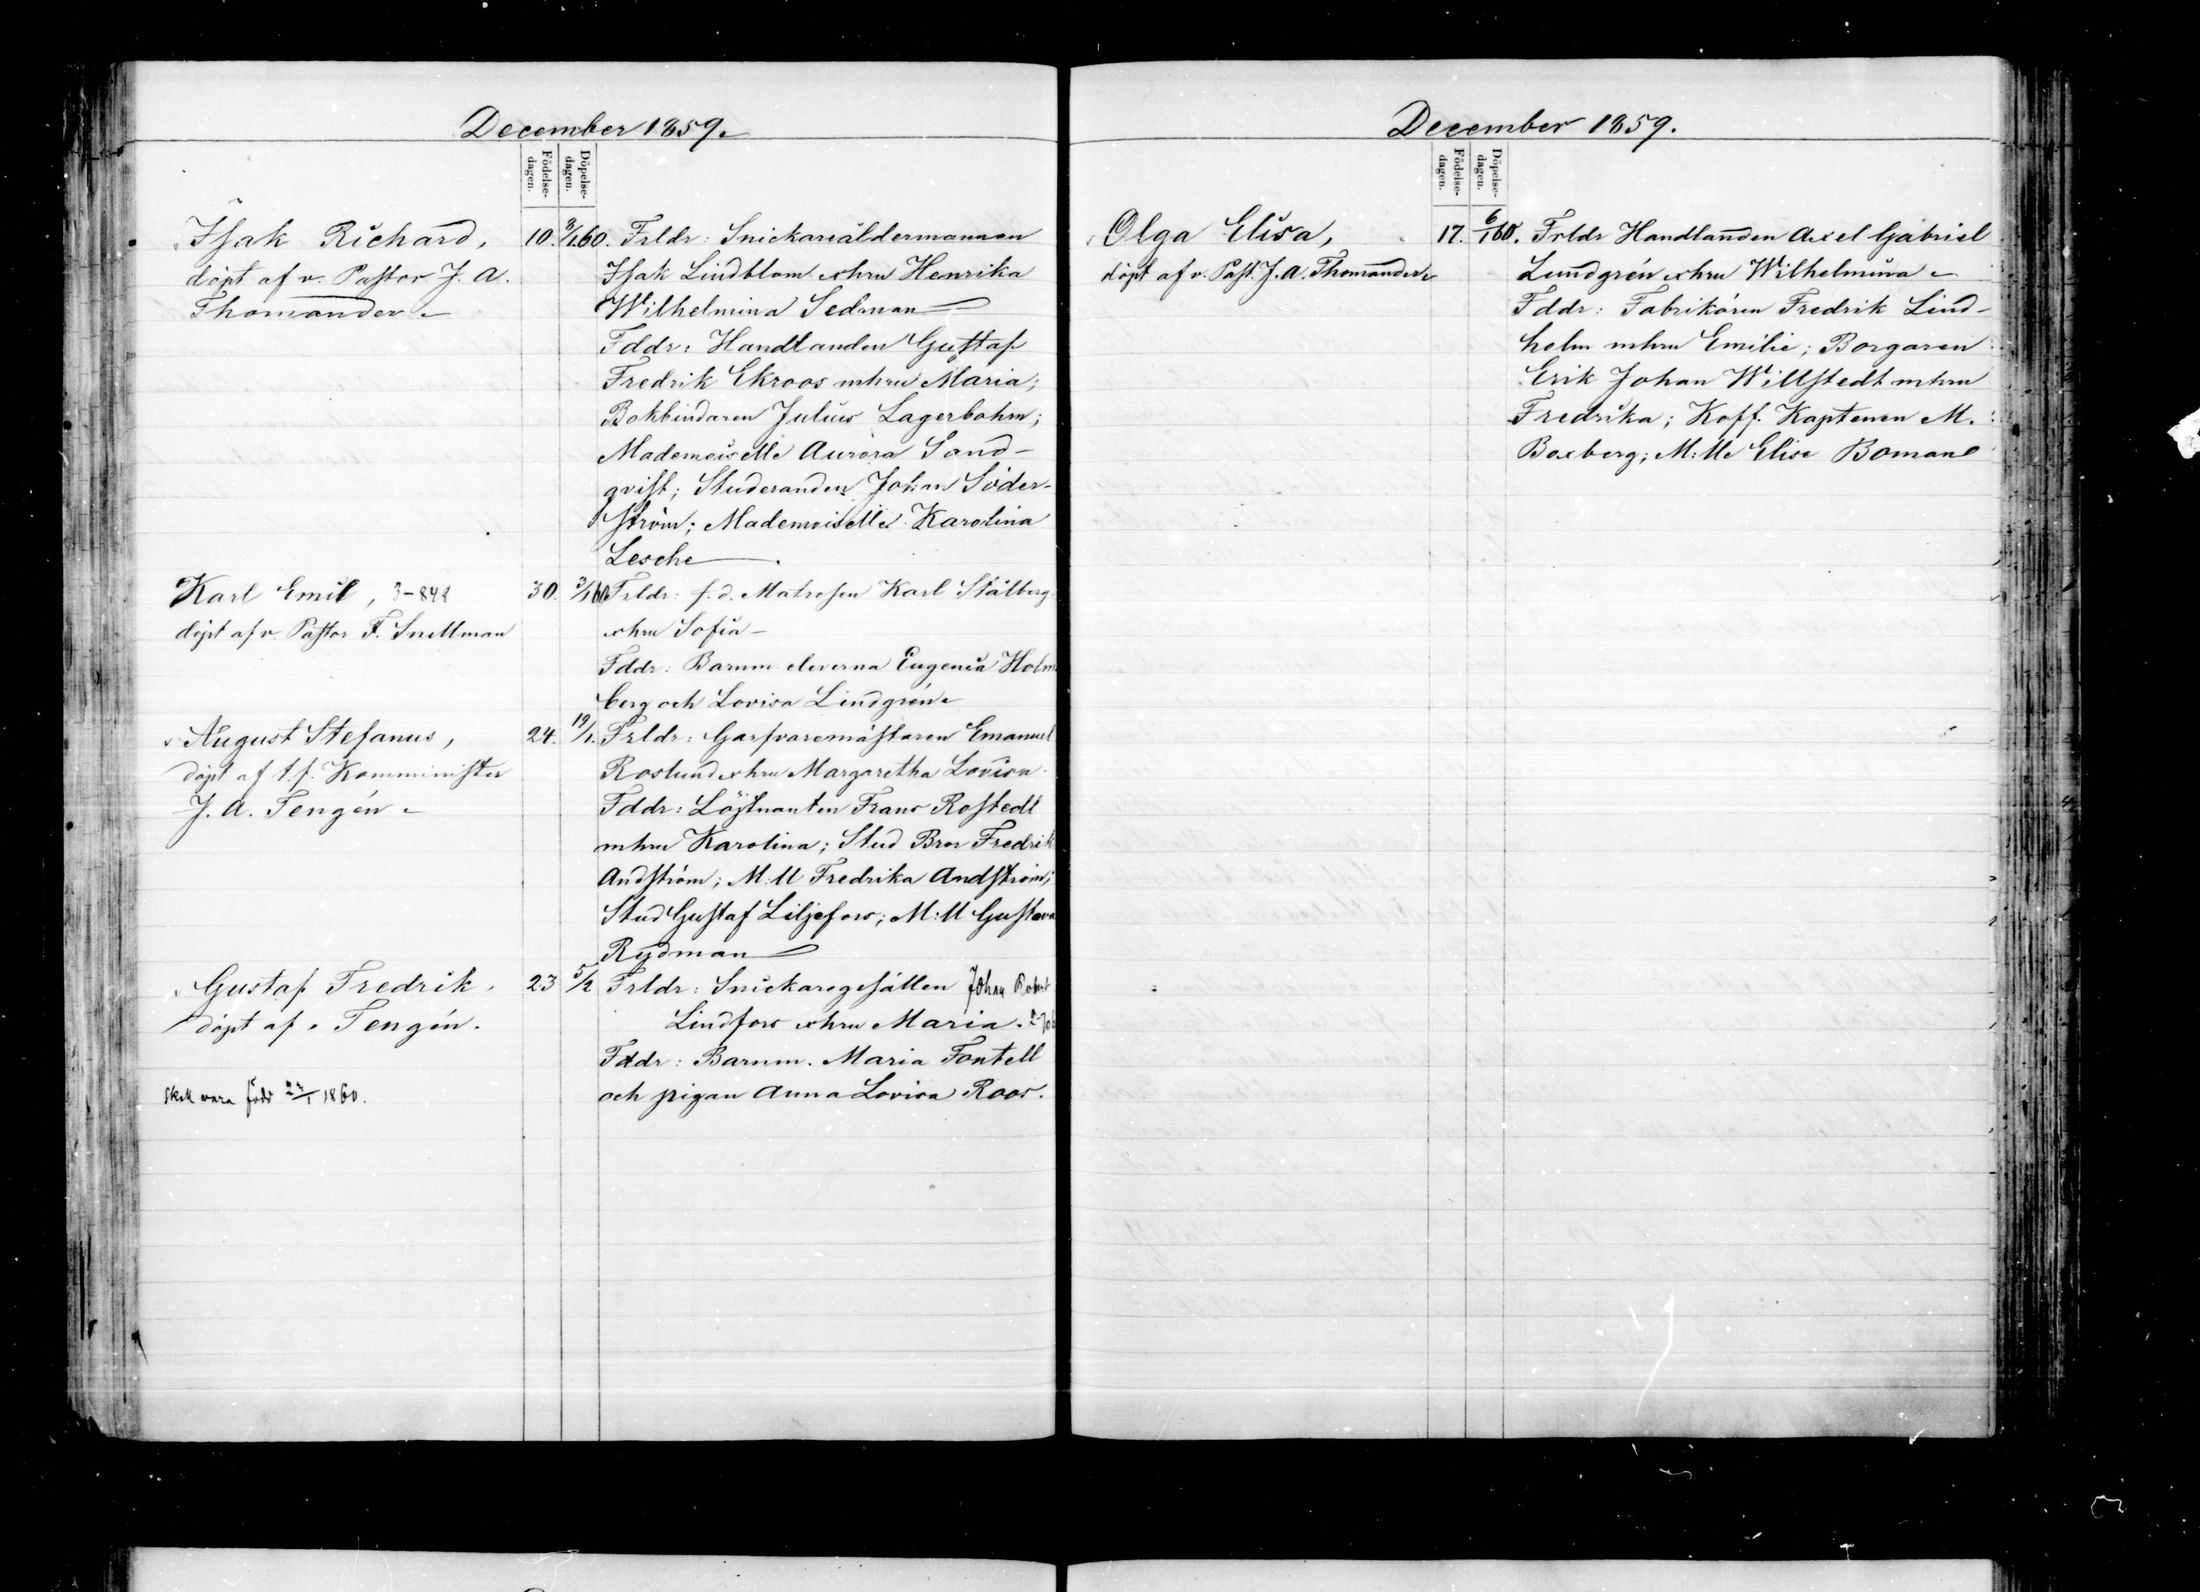 December 1859.
Födelse-dagen.
Döpelse-dagen.
Isak Richard,
döpt af v. Pastor J. A.
Thomander
10. 60. Frldr: Snickareåldermannen
Isak Lindblom o hru Henrika
Wilhelmina Sedman
Fddr: Handlanden Gustaf
Fredrik Ekroos m hru Maria;
Bokbindaren Julius Lagerbohm;
Mademoiselle Aurora Sand-
qvist; Studeranden Johan Söder-
ström; Mademoiselle Karolina
Lesche
Karl Emil, 3-848
döpt af v. Pastor F. Snellman
30. 3/1 60 Frldr: f. d. Matrosen Karl Stålberg
o hru Sofia
Fddr: Barnm. eleverna Eugenia Holm
berg och Lovisa Lindgrén
August Stefanus,
döpt af t. f. Komminister
J. A. Tengén
24. 19/1. Frldr: Garfvaremästaren Emanuel
Roslund o hru Margaretha Lovisa
Fddr: Löjtnanten Frans Rostedt
m hru Karolina; Stud Bror Fredrik
Andström; M:ll Fredrika Andström;
Stud Gustaf Liljefors; M:ll Gustava
Rydman
Gustaf Fredrik.
döpt af v. Tengén.
skall vara född 1860.
23 5/2 Frldr: Snickaregesällen Johan Robert
Lindfors o hru Maria.
Fddr: Barnm. Maria Fontell
och pigan Anna Lovisa Roos.
December 1859.
Födelse-dagen.
Döpelse-dagen.
Olga Elisa,
döpt af v. Past. J. A. Thomander
17. 6/1 60. Frldr Handlanden Axel Gabriel
Lundgrén o hru Wilhelmina
Fddr: Fabrikören Fredrik Lind-
holm m hru Emilie; Borgaren
Erik Johan Willstedt m hru
Fredrika; Koff. Kaptenen M.
Boxberg; M:lle Elise Boman